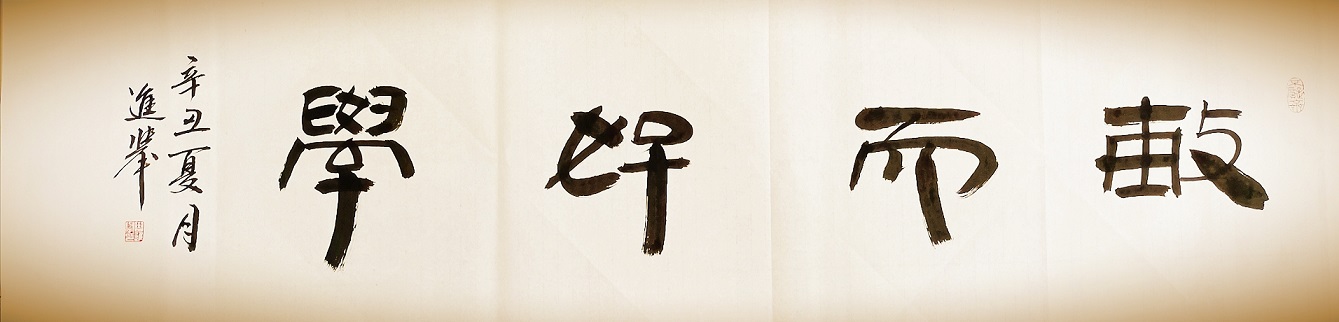 敏而好學
辛丑夏月
進學